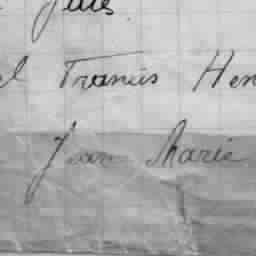 Jules
el Francis Hen
Jean Marie